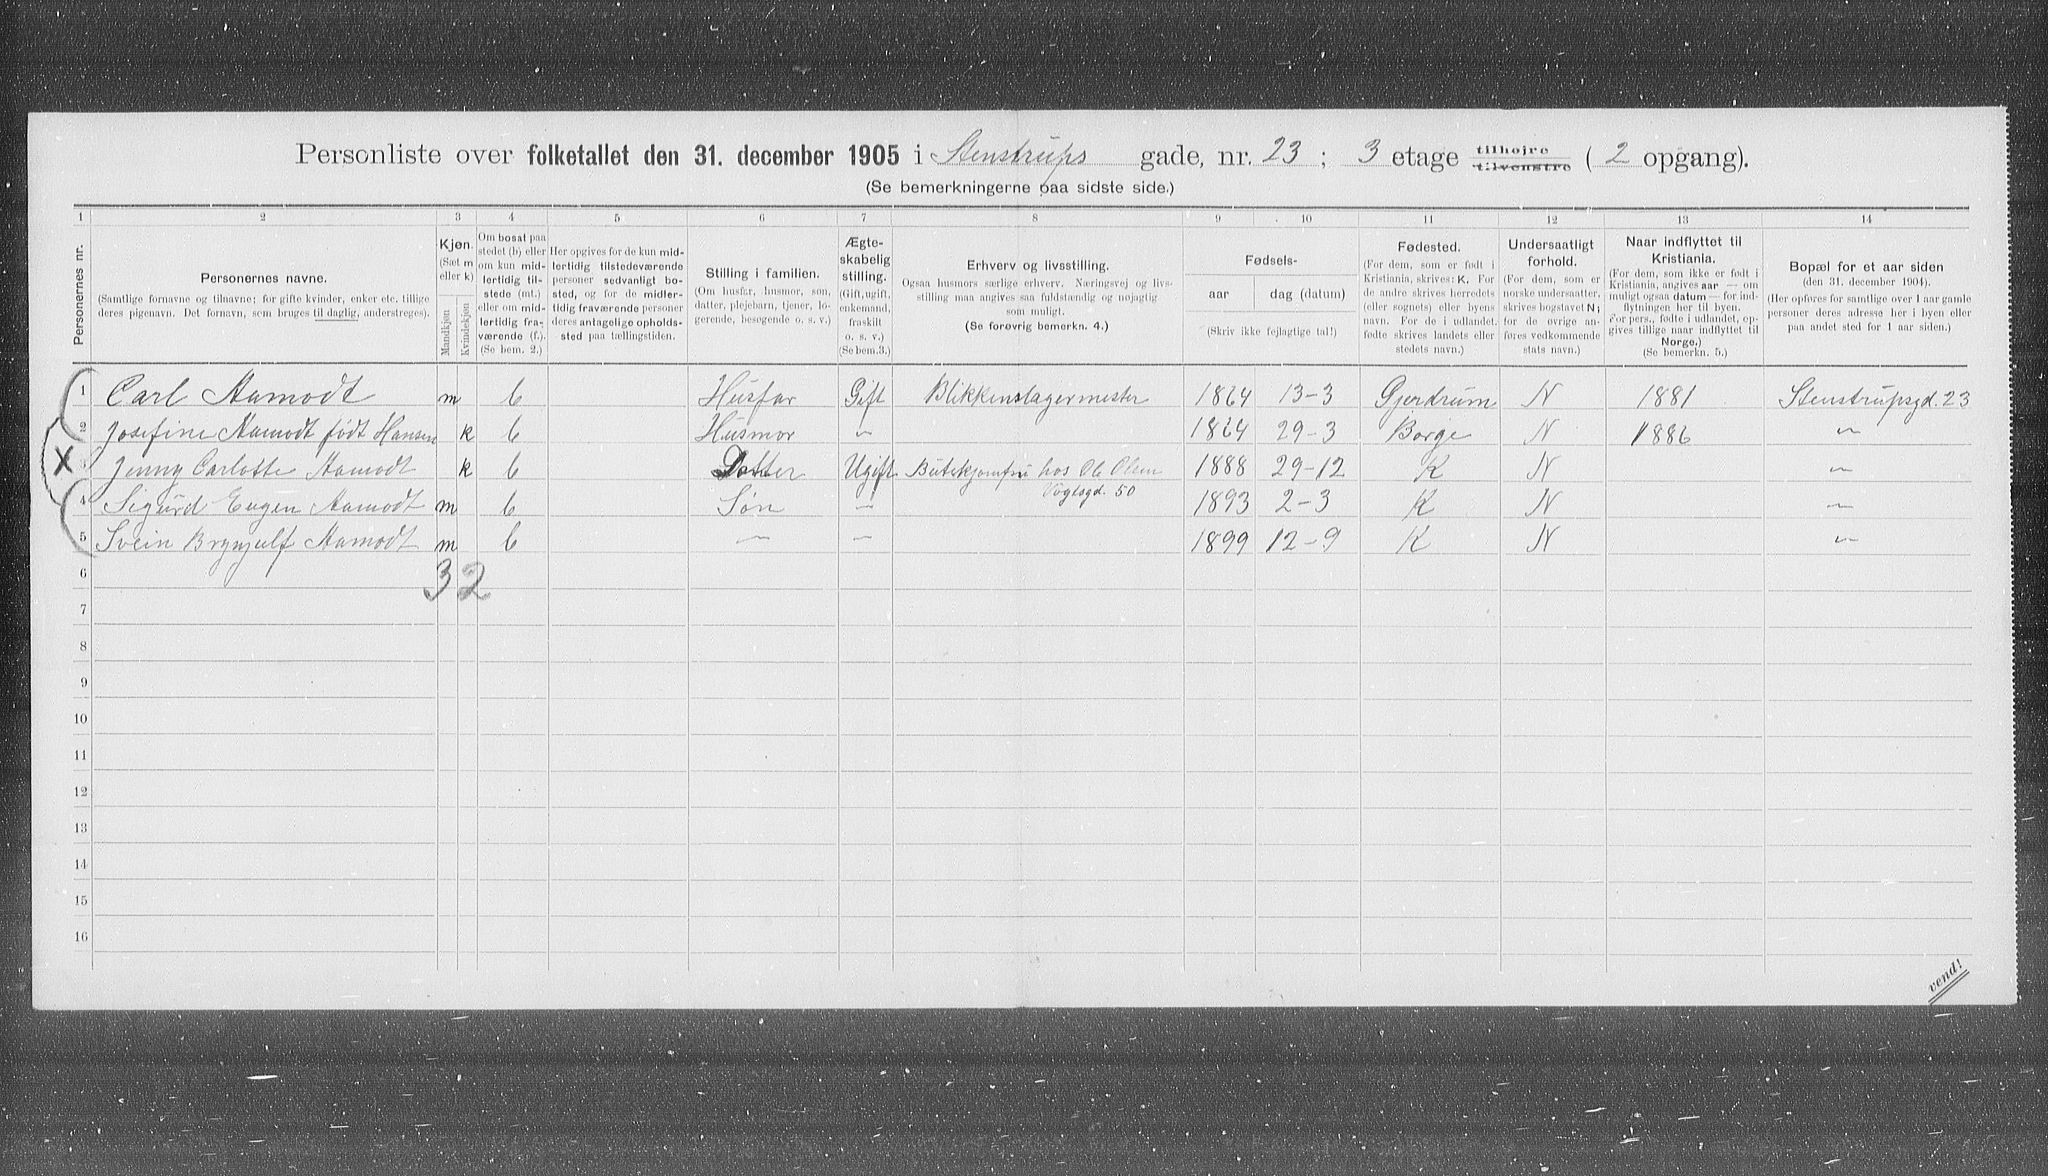 Personliste over folketallet den 31. december 1905 i Stenstrups gade, nr. 23 ; 3 etage tilhøjre tilvenstre ( 2 opgang).
(Se bemerkningerne paa sidste side.)
1 2 3 4 5 6 7 8 9 10 11 12 13 14
Personernes nr.
Personernes navne.
(Samtlige fornavne og tilnavne; for gifte kvinder, enker etc. tillige
deres pigenavn. Det fornavn, som bruges til daglig, anderstreges).
Kjøn.
(Sæt m
eller k)
Mandkjøn
Kvindekjøn
Om bosat paa
stedet (b) eller
om kun mid-
lertidig til-
stede (mt.)
eller om mid-
lertidig fra-
værende (f.).
(Se bem. 2.)
Her opgives for de kun mid-
lertidig tilstedeværende
personer sedvanligt bo-
sted, og for de midler-
tidig fraværende personer
deres antagelige opholds-
sted paa tællingstiden.
Stilling i familien.
(Om husfar, husmor, søn,
datter, plejebarn, tjener, lo-
gerende, besøgende o. s. v.)
Ægte-
skabelig
stilling.
(Gift, ugift,
enkemand,
fraskilt
o. s. v.)
(Se bem.3.)
Erhverv og livsstilling.
Ogsaa husmors særlige erhverv. Næringsvej og livs-
stilling maa angives saa fuldstændig og nøjagtig
som muligt.
(Se forøvrig bemerkn. 4.)
Fødsels-
aar dag (datum)
(Skriv ikke fejlagtige tal!)
Fødested.
(For dem, som er født i
Kristiania, skrives: K. For
de andre skrives herredets
(eller sognets) eller byens
navn. For de i udlandet.
fødte skrives landets eller
stedets navn.)
Undersaatligt
forhold.
(For dem, som er
norske undersaatter,
skrives bogstavet N;
for de øvrige an-
føres vedkommende
stats navn.)
Naar indflyttet til
Kristiania.
(For dem, som ikke er født i
Kristiania, angives aar — om
muligt ogsaa datum — for ind-
flytningen her til byen.
For pers., fødte i udlandet, op-
gives tillige naar indflyttet til
Norge.)
(Se bemerkn. 5.)
Bopæl for et aar siden
(den 31. december 1904).
(Her opføres for samtlige over 1 aar gamle
personer deres adresse her i byen eller
paa andet sted for 1 aar siden.)
1 Carl Aamodt m b Husfar Gift Blikkenslagermester 1864 13-3 Gjerdrum N 1881 Stenstrupsgd. 23
2 Josefine Aamodt født Hansen k b Husmor " 1864 29-3 Borge N 1886 "
X
3 Jenny Carlotte Aamodt k b Datter Ugift Butikjomfru hos Ole Olsen 1888 29-12 K N "
Voglsgd. 50
4 Sigurd Eugen Aamodt m b Søn " 1893 2-3 K N "
5 Svein Brynjulf Aamodt m b " " 1899 12-9 K N "
6 3 2
7
8
9
10
11
12
13
14
15
16
vend!